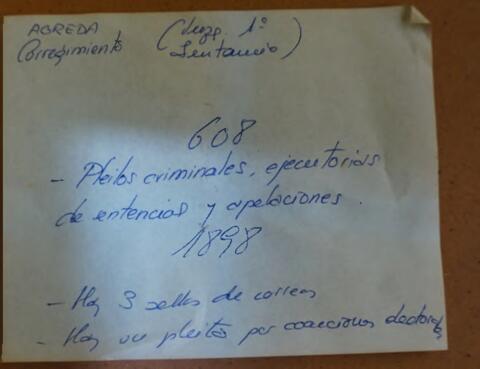 AGREDA (Juzg. 1ª
Corregimiento Instancia)
608
- Pleitos criminales, ejecutorias
de sentencias y apelaciones.
1898
- Hay 3 sellos de correos
- Hay un pleito por coacciones electorales